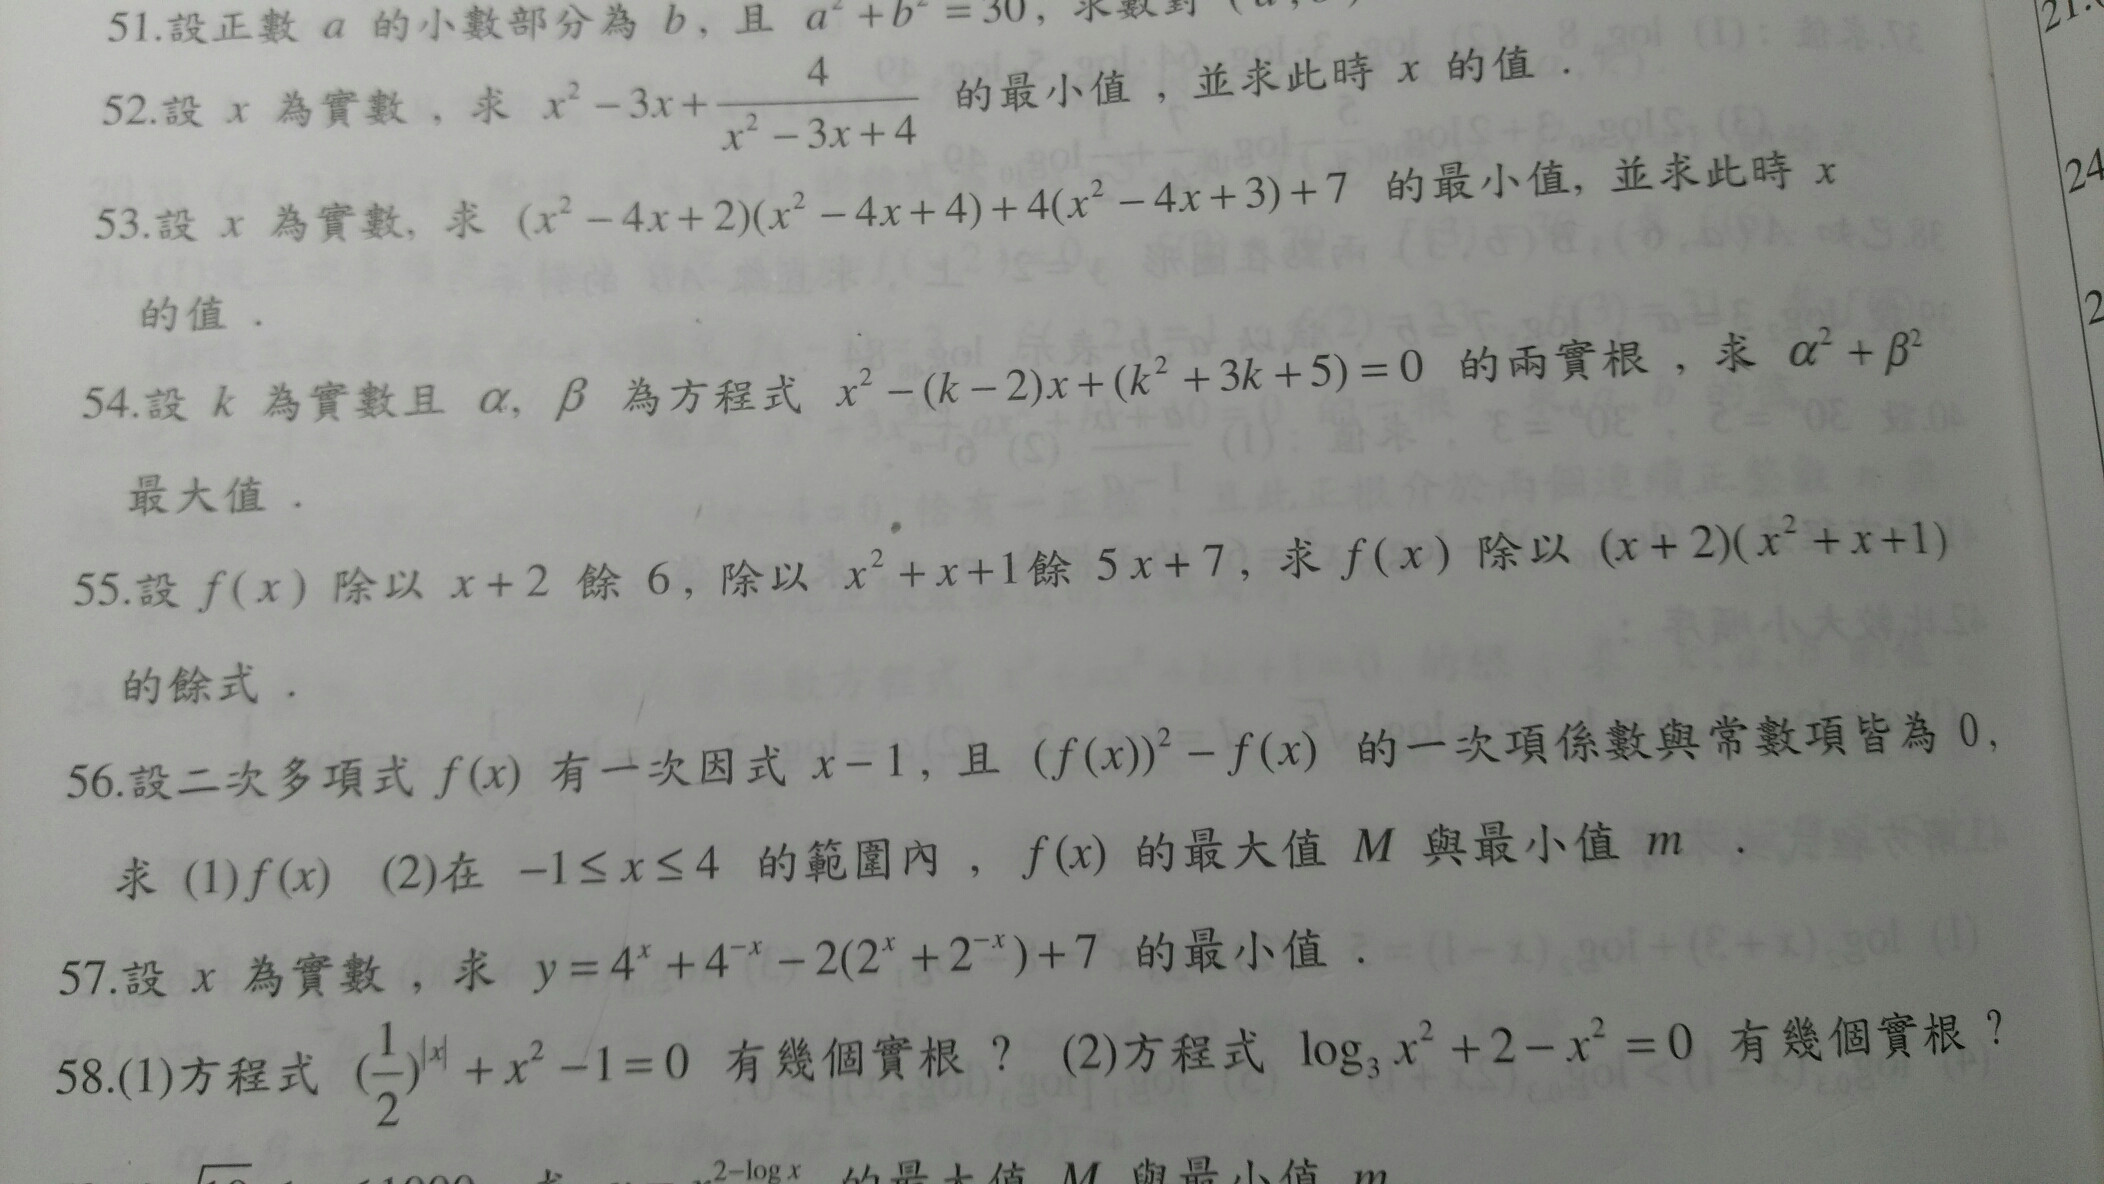 51.設正數 a 的小數部分為 b, 且 a² + b² = 30, 求數對
52.設 x 為實數 , 求 x² − 3x + 4/(x² − 3x + 4) 的最小值 , 並求此時 x 的值 .
53.設 x 為實數, 求 (x² − 4x + 2)(x² − 4x + 4) + 4(x² − 4x + 3) + 7 的最小值, 並求此時 x
的值 .
54.設 k 為實數且 α, β 為方程式 x² − (k − 2)x + (k² + 3k + 5) = 0 的兩實根 , 求 α² + β²
最大值 .
55.設 f(x) 除以 x + 2 餘 6, 除以 x² + x + 1 餘 5x + 7, 求 f(x) 除以 (x + 2)(x² + x + 1)
的餘式 .
56.設二次多項式 f(x) 有一次因式 x − 1, 且 (f(x))² − f(x) 的一次項係數與常數項皆為 0,
求 (1)f(x) (2)在 −1 ≤ x ≤ 4 的範圍內 , f(x) 的最大值 M 與最小值 m .
57.設 x 為實數 , 求 y = 4ˣ + 4⁻ˣ − 2(2ˣ + 2⁻ˣ) + 7 的最小值 .
58.(1)方程式 (1/2)^|x| + x² − 1 = 0 有幾個實根 ? (2)方程式 log₃ x² + 2 − x² = 0 有幾個實根 ?
1000 求 x^(2−log x) 的最大值 M 與最小值 m
21.
24
2